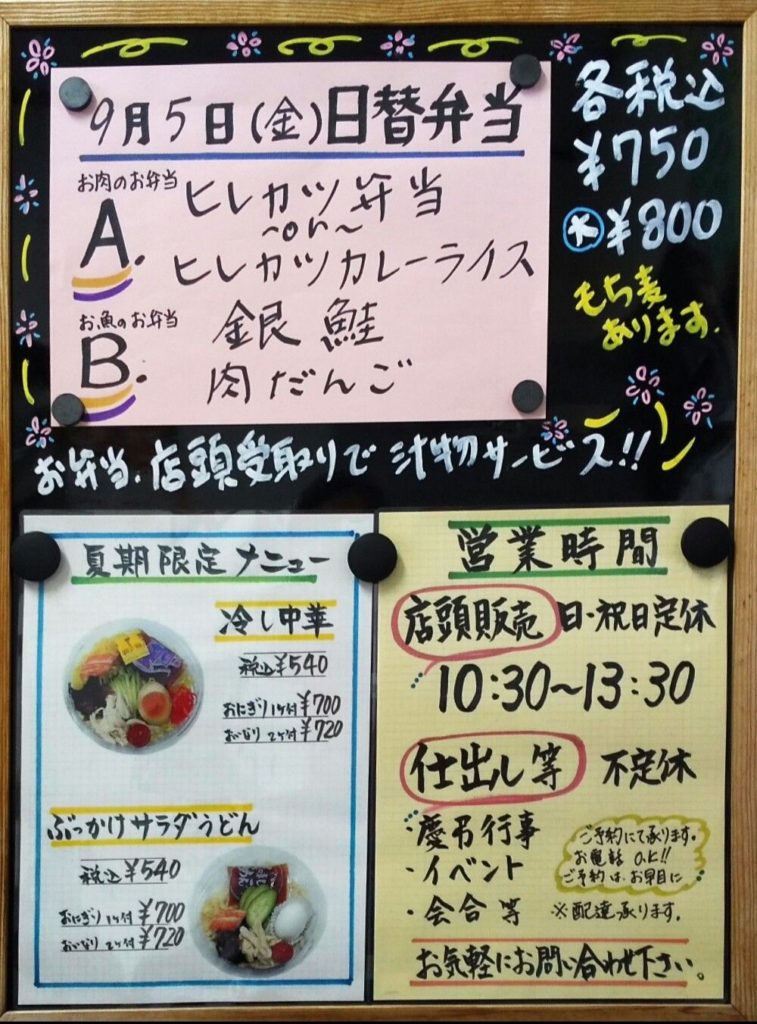 9月5日(金)日替弁当
お肉のお弁当
A.
ヒレカツ弁当
～or～
ヒレカツカレーライス
お魚のお弁当
B.
銀鮭
肉だんご
各税込
¥750
大¥800
もち麦
あります.
お弁当.店頭受取りで汁物サービス!!
夏期限定メニュー
冷し中華
税込¥540
おにぎり1ケ付¥700
おいなり2ケ付¥720
ぶっかけサラダうどん
税込¥540
おにぎり1ケ付¥700
おいなり2ケ付¥720
営業時間
店頭販売 日・祝日定休
10:30～13:30
仕出し等 不定休
・慶弔行事
・イベント
・会合等
ご予約にて承ります.
お電話O.K!!
ご予約は、お早目に
※配達承ります.
お気軽にお問い合わせ下さい。